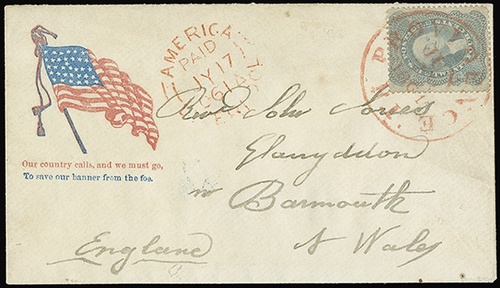 AMERICA
PAID
JY 17
61
Our country calls, and we must go,
To save our banner from the foe.
Revd John Jones
Glanyddon
Barmouth
N Wales
England